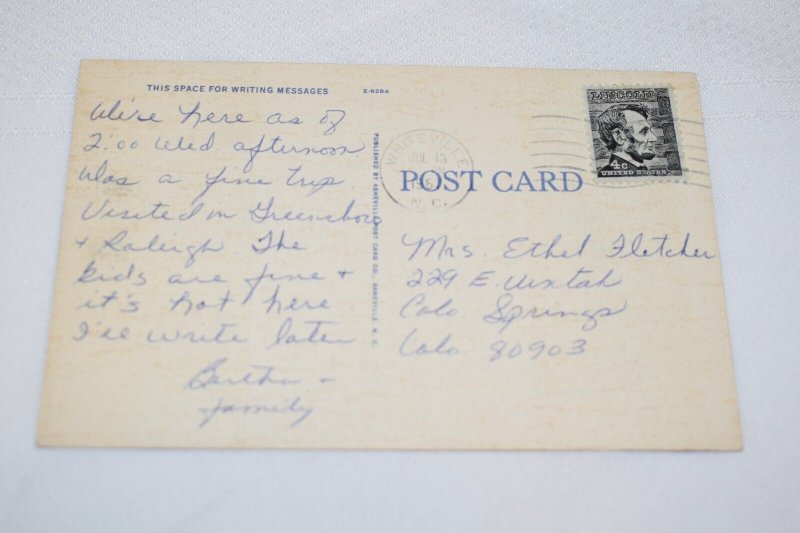 THIS SPACE FOR WRITING MESSAGES E-6264
We're here as of
2:00 Wed. afternoon
Was a fine trip
Visited in Greensboro
& Raleigh The
kids are fine &
it's hot here
I'll write later
Bertha &
family
PUBLISHED BY ASHEVILLE POST CARD CO., ASHEVILLE, N. C.
WHITEVILLE
JUL 13
N. C.
POST CARD
LINCOLN
4c
UNITED STATES
Mrs Ethel Fletcher
229 E. Uintah
Colo Springs
Colo 80903